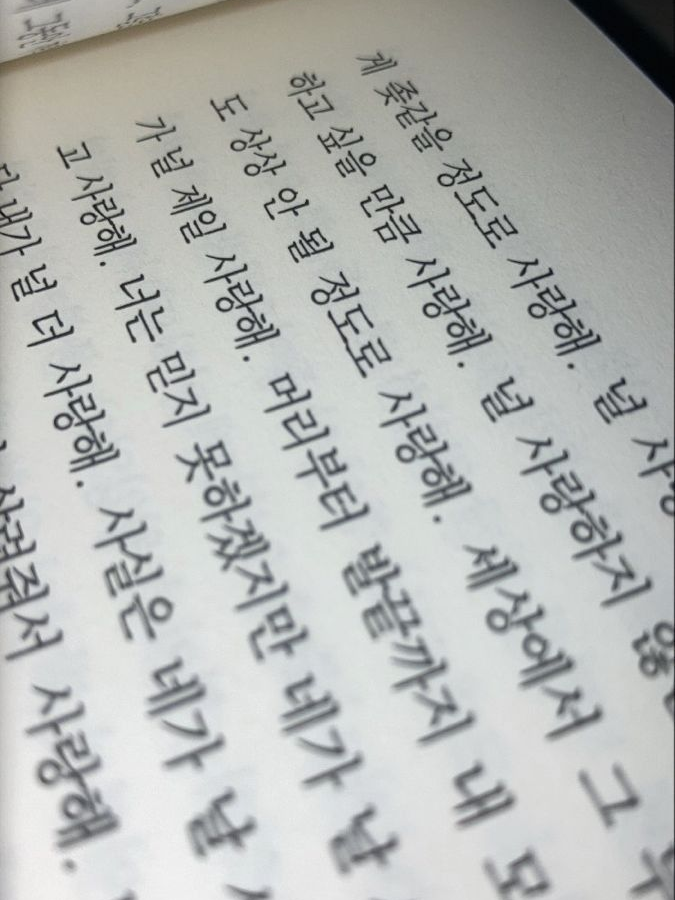 게 좆같을 정도로 사랑해. 널
하고 싶을 만큼 사랑해. 널 사랑하지
도 상상 안 될 정도로 사랑해. 세상에서 그
가 널 제일 사랑해. 머리부터 발끝까지 내
고 사랑해. 너는 믿지 못하겠지만 네가 날
내가 널 더 사랑해. 사실은 네가 날
사랑해.